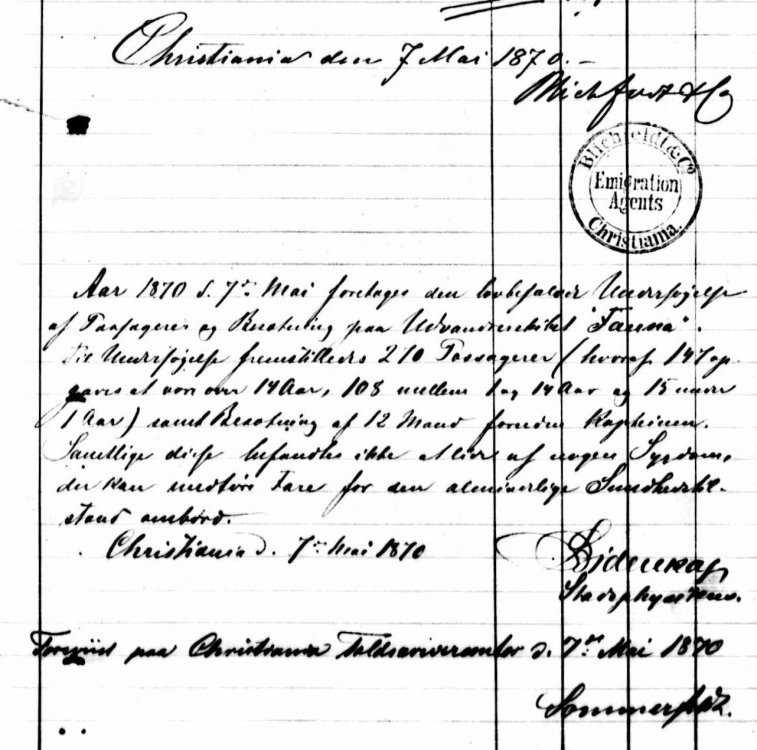 Christiania den 7 Mai 1870.-
Blichfeldt & Co
Blichfeldt & Co
Emigration
Agents
Christiania.
Aar 1870 d. 7de Mai foretoges den lovbefalede Undersøgelse
af Passagerer og Besætning paa Udvandrerskibet "Fauna".
Til Undersøgelse fremstilledes 270 Passagerer (hvoraf 147 op
gaves at være over 14 Aar, 108 mellem 1 og 14 Aar og 15 under
1 Aar) samt Besætning af 12 Mand foruden Kapteinen.
Samtlige disse befandtes ikke at lide af nogen Sygdom,
der kan medføre Fare for den almindelige Sundhedstil-
stand ombord.
Christiania d. 7de Mai 1870
Stadsphysikus.
Foreviist paa Christiania Toldskrivercontor d. 7de Mai 1870